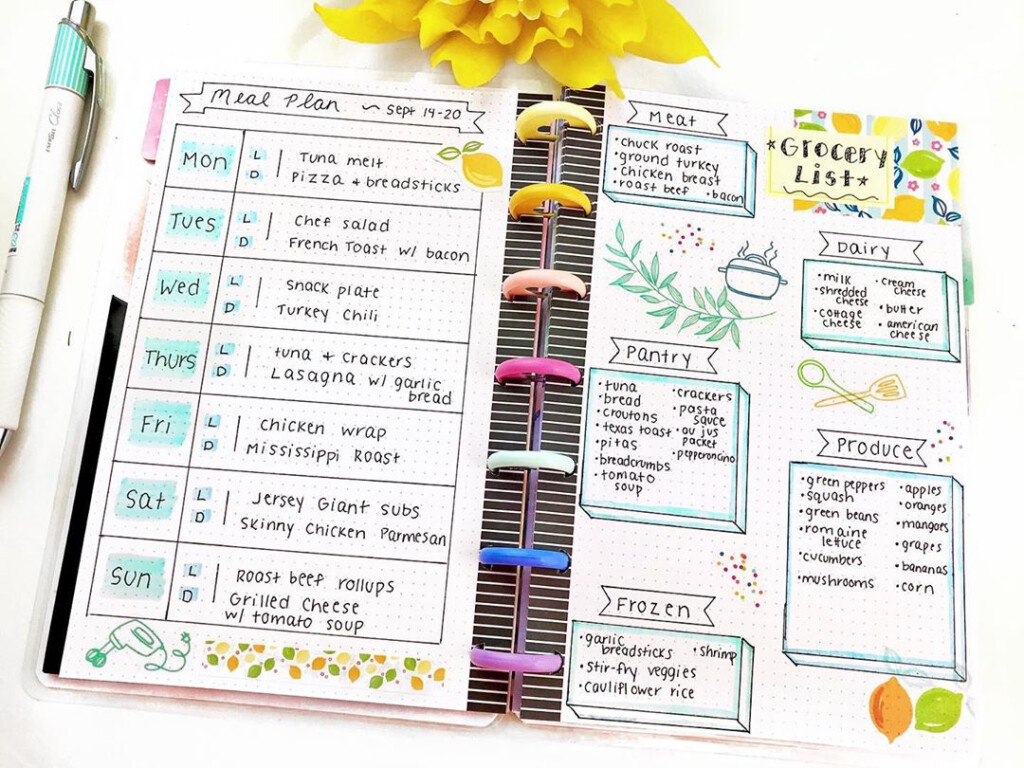 Meal Plan ~ Sept 14-20
Mon
L
D
Tuna melt
Pizza + breadsticks
Tues
L
D
Chef salad
French Toast w/ bacon
Wed
L
D
snack plate
Turkey Chili
Thurs
L
D
tuna + crackers
Lasagna w/ garlic
bread
Fri
L
D
chicken wrap
Mississippi Roast
Sat
L
D
Jersey Giant subs
Skinny Chicken Parmesan
Sun
L
D
Roast beef rollups
Grilled Cheese
w/ tomato soup
Meat
•chuck roast
•ground turkey
•chicken breast
•roast beef •bacon
*Grocery
List*
Dairy
•milk
•shredded
cheese
•cottage
cheese
•cream
cheese
•butter
•american
cheese
Pantry
•tuna
•bread
•croutons
•texas toast
•pitas
•breadcrumbs
•tomato
soup
•crackers
•pasta
sauce
•au jus
packet
•pepperoncino
Produce
•green peppers
•squash
•green beans
•romaine
lettuce
•cucumbers
•mushrooms
•apples
•oranges
•mangoes
•grapes
•bananas
•corn
Frozen
•garlic
breadsticks
•stir-fry veggies
•cauliflower rice
•shrimp